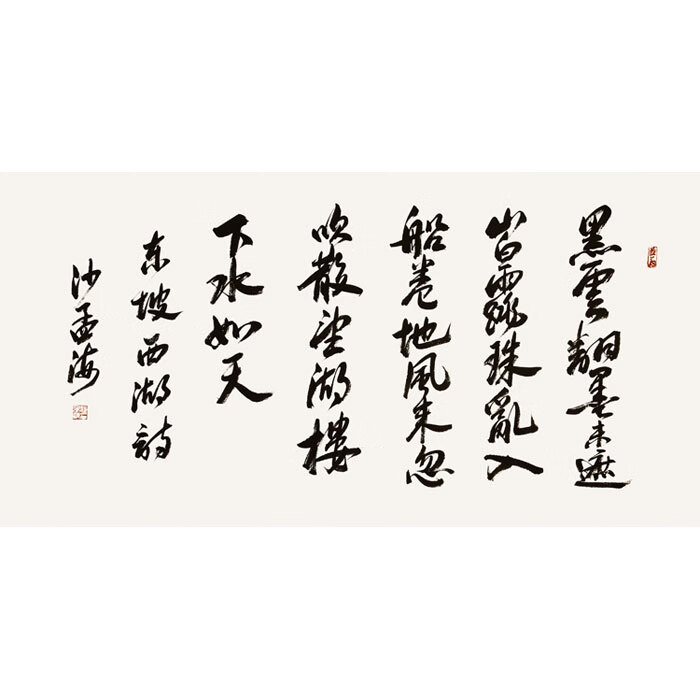 黑雲翻墨未遮
山白雨跳珠亂入
船卷地風来忽
吹散望湖樓
下水如天
东坡西湖詩
沙孟海